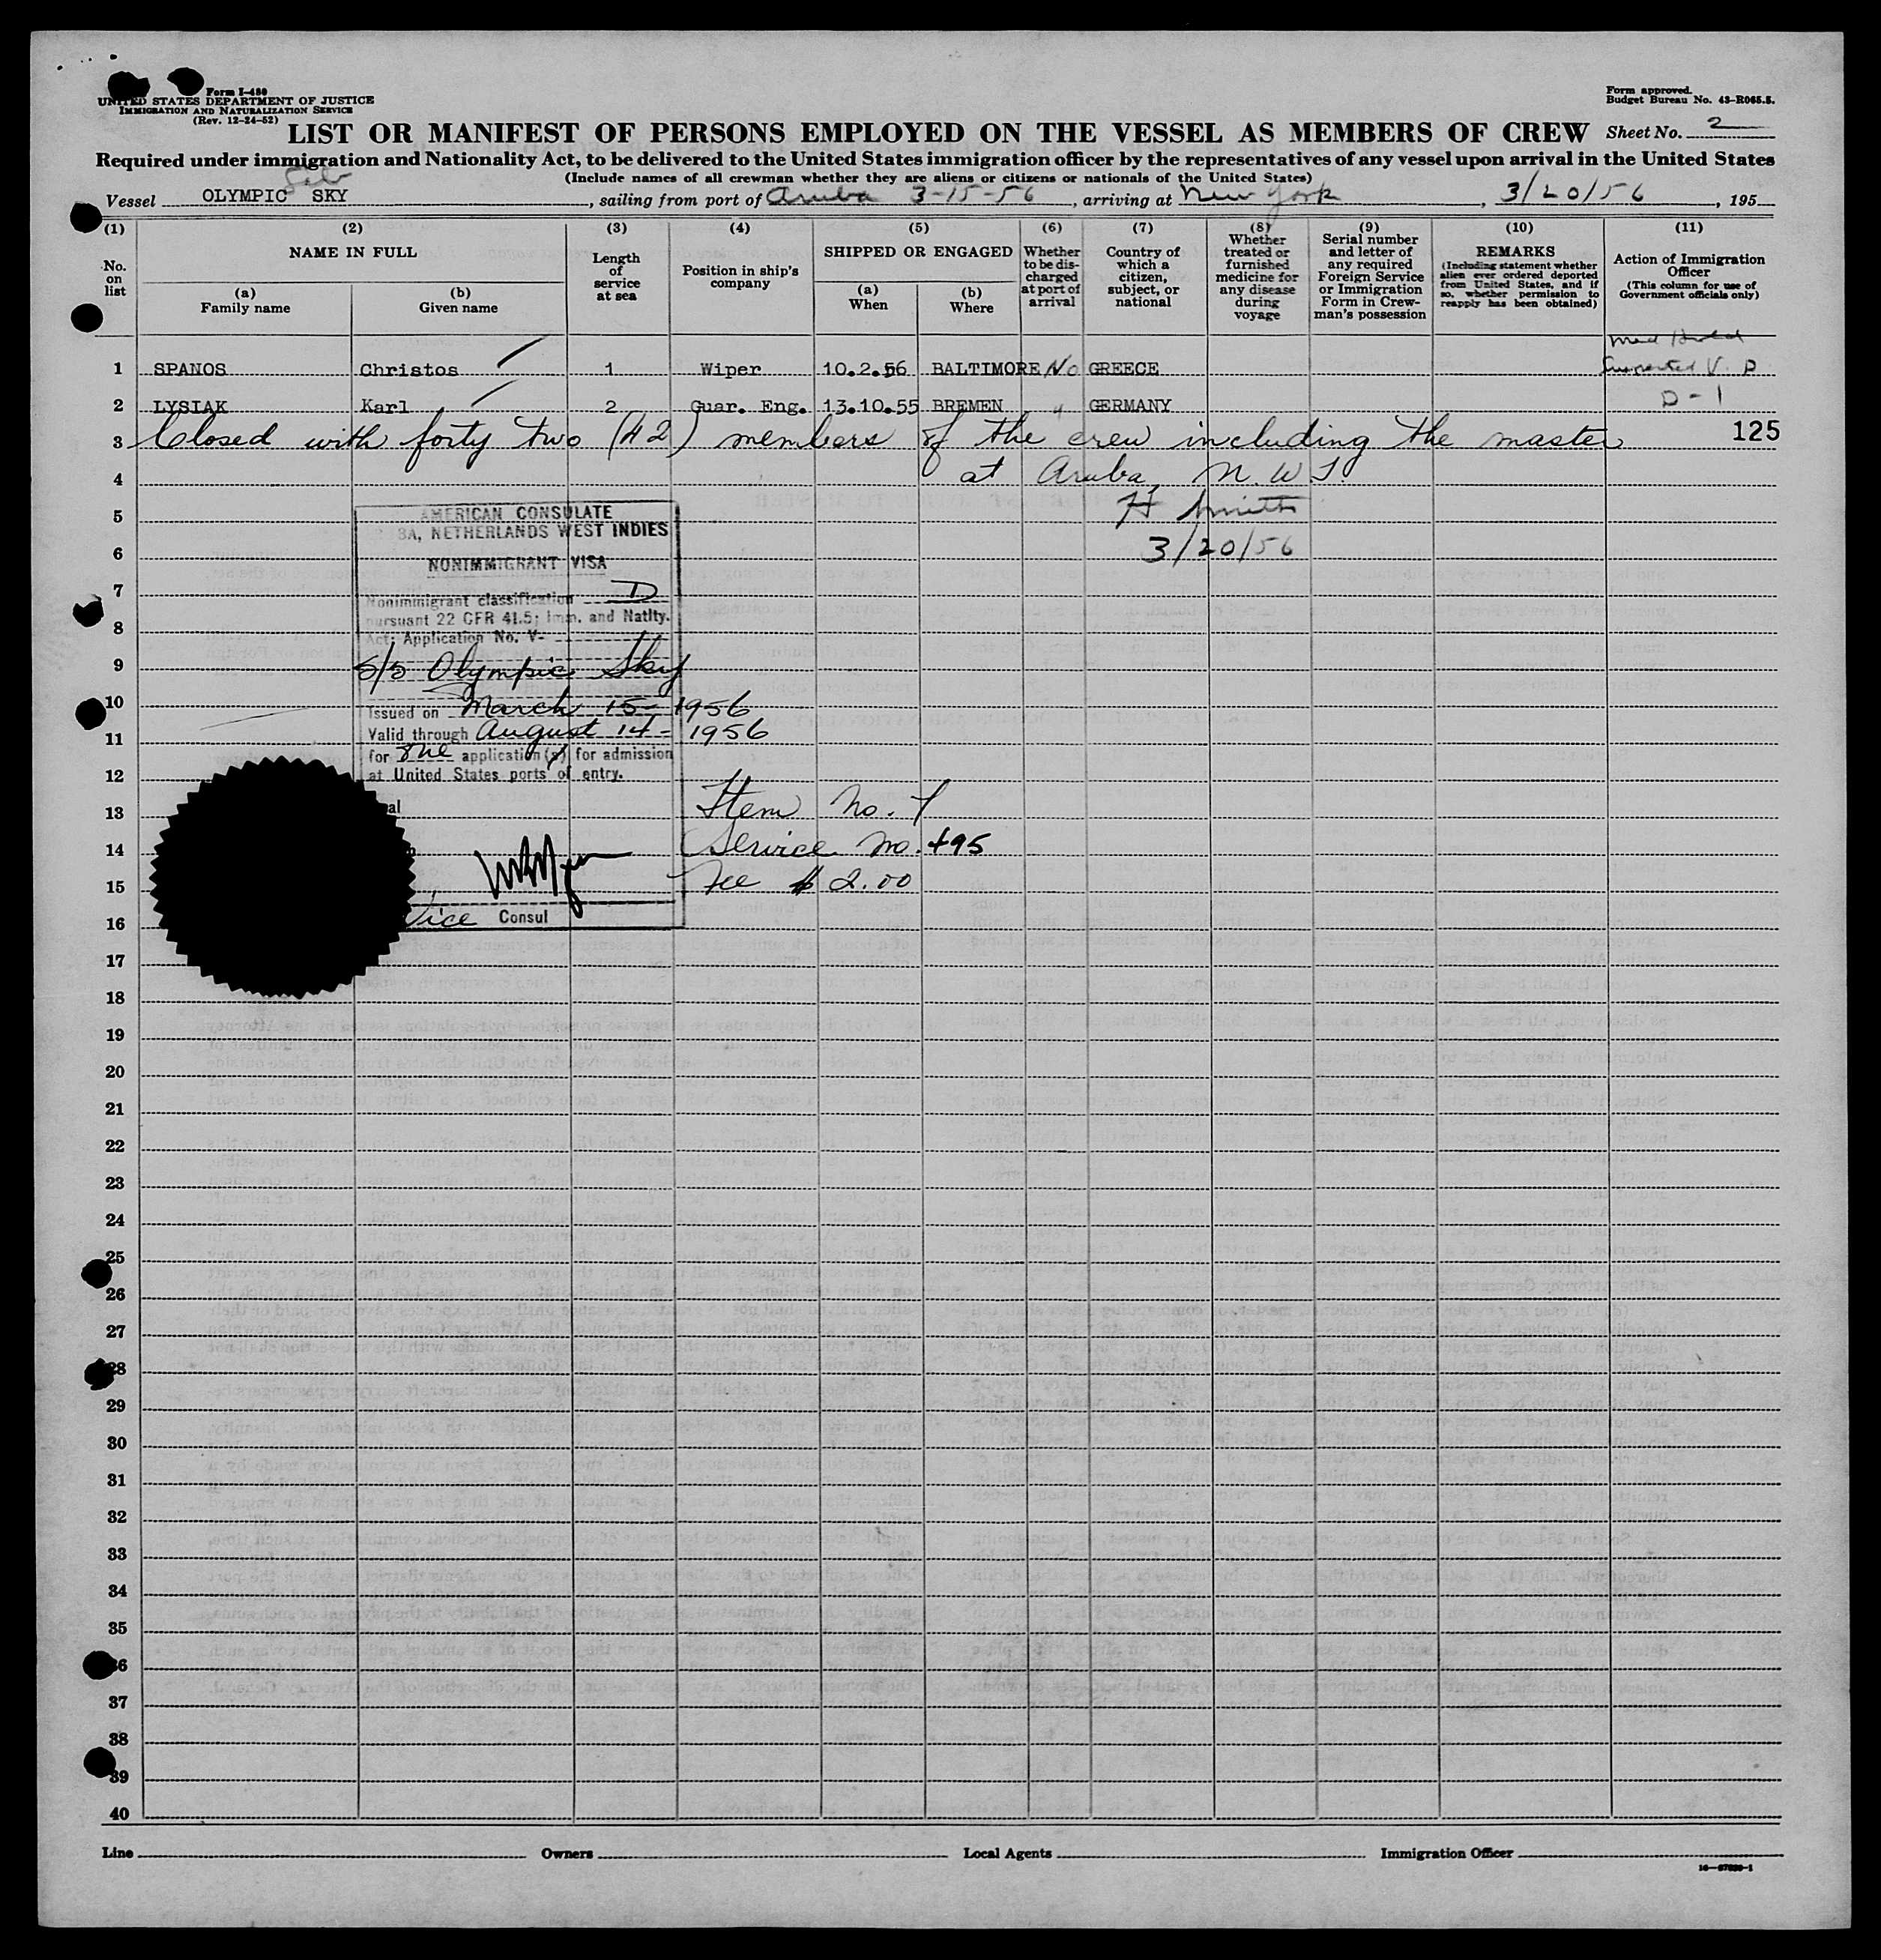 Form I-480
UNITED STATES DEPARTMENT OF JUSTICE
IMMIGRATION AND NATURALIZATION SERVICE
(Rev. 12-24-52)
Form approved.
Budget Bureau No. 43-R065.5.
LIST OR MANIFEST OF PERSONS EMPLOYED ON THE VESSEL AS MEMBERS OF CREW
Sheet No. 2
Required under immigration and Nationality Act, to be delivered to the United States immigration officer by the representatives of any vessel upon arrival in the United States
(Include names of all crewman whether they are aliens or citizens or nationals of the United States)
Vessel OLYMPIC SKY, sailing from port of Aruba 3-15-56, arriving at New York, 3/20/56, 195
(1) No. on list
(2) NAME IN FULL
(a) Family name
(b) Given name
(3) Length of service at sea
(4) Position in ship's company
(5) SHIPPED OR ENGAGED
(a) When
(b) Where
(6) Whether to be discharged at port of arrival
(7) Country of which a citizen, subject, or national
(8) Whether treated or furnished medicine for any disease during voyage
(9) Serial number and letter of any required Foreign Service or Immigration Form in Crewman's possession
(10) REMARKS (Including statement whether alien ever ordered deported from United States, and if so, whether permission to reapply has been obtained)
(11) Action of Immigration Officer (This column for use of Government officials only)
Med Hold
1 SPANOS Christos 1 Wiper 10.2.56 BALTIMORE No GREECE Suspected V. D
2 LYSIAK Karl 2 Guar. Eng. 13.10.55 BREMEN " GERMANY D-1
3 Closed with forty two (42) members of the crew including the master 125
4 at Aruba, N.W.I.
5 H Smith
6 3/20/56
AMERICAN CONSULATE
BA, NETHERLANDS WEST INDIES
NONIMMIGRANT VISA
7 Nonimmigrant classification D
8 pursuant 22 CFR 41.5; Imm. and Natlty.
Act; Application No. V-
9 S/S Olympic Sky
10 Issued on March 15- 1956
11 Valid through August 14- 1956
for One application(s) for admission
12 at United States ports of entry.
13 Item No. 7
14 Service No. 495
15 Fee $ 2.00
16 Vice Consul
17
18
19
20
21
22
23
24
25
26
27
28
29
30
31
32
33
34
35
36
37
38
39
40
Line Owners Local Agents Immigration Officer